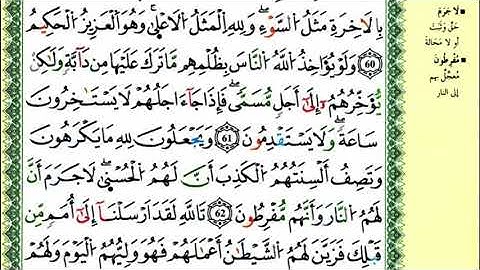 بِالَاخِرَةِ مَثَلُ السَّوْءِ وَلِلهِ الْمَثَلُ الَاعْلَىٰ وَهُوَ الْعَزِيزُ الْحَكِيمُ
60 وَلَوْ يُوَاخِذُ اللَّهُ النَّاسَ بِظُلْمِهِم مَّا تَرَكَ عَلَيْهَا مِن دَآبَّةٍ وَلَٰكِنْ
يُوَخِّرُهُمُ إِلَىٰ أَجَلٍ مُّسَمًّى فَإِذَا جَآءَ اجَلُهُمْ لَا يَسْتَٰخِرُونَ
سَاعَةً وَلَا يَسْتَقْدِمُونَ 61 وَيَجْعَلُونَ لِلهِ مَا يَكْرَهُونَ
وَتَصِفُ أَلْسِنَتُهُمُ الْكَذِبَ أَنَّ لَهُمُ الْحُسْنَىٰ لَا جَرَمَ أَنَّ
لَهُمُ النَّارَ وَأَنَّهُم مُّفْرِطُونَ 62 تَاللَّهِ لَقَدَ ارْسَلْنَا إِلَىٰ أُمَمٍ مِّن
قَبْلِكَ فَزَيَّنَ لَهُمُ الشَّيْطَٰنُ أَعْمَٰلَهُمْ فَهُوَ وَلِيُّهُمُ الْيَوْمَ وَلَهُمْ
لَا جَرَمَ
حَقَّ وَثَبَتَ
أو لا مَحَالَةَ
مُفْرِطُونَ
مُعَجَّلٌ بهم
إلى النار